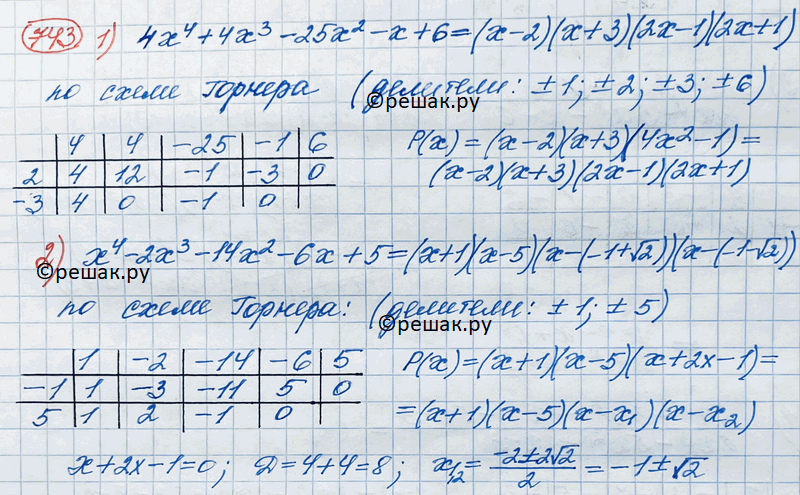 743 1) 4x⁴+4x³-25x²-x+6=(x-2)(x+3)(2x-1)(2x+1)
по схеме Горнера (делители: ±1; ±2; ±3; ±6)
©решак.ру
4 4 -25 -1 6
2 4 12 -1 -3 0
-3 4 0 -1 0
P(x)=(x-2)(x+3)(4x²-1)=
(x-2)(x+3)(2x-1)(2x+1)
2) x⁴-2x³-14x²-6x+5=(x+1)(x-5)(x-(-1+√2))(x-(-1-√2))
©решак.ру
по схеме Горнера: (делители: ±1; ±5)
©решак.ру
1 -2 -14 -6 5
-1 1 -3 -11 5 0
5 1 2 -1 0
P(x)=(x+1)(x-5)(x+2x-1)=
=(x+1)(x-5)(x-x₁)(x-x₂)
x+2x-1=0; D=4+4=8; x₁,₂=(-2±2√2)/2=-1±√2